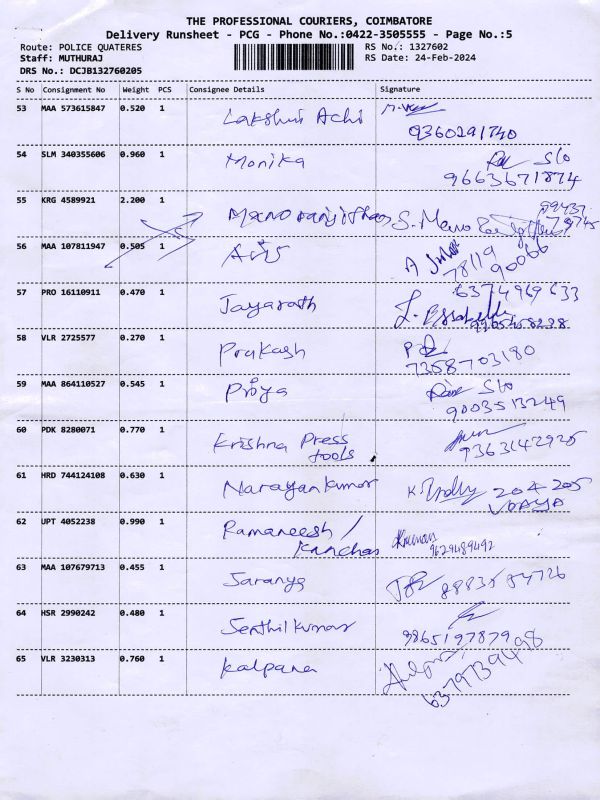 THE PROFESSIONAL COURIERS, COIMBATORE
Delivery Runsheet - PCG - Phone No.:0422-3505555 - Page No.:5
Route: POLICE QUATERES
RS No.: 1327602
Staff: MUTHURAJ
RS Date: 24-Feb-2024
DRS No.: DCJB132760205
S No Consignment No Weight PCS Consignee Details Signature
53 MAA 573615847 0.520 1 Lakshmi Achi
9360291740
54 SLM 340355606 0.960 1 Monika S/o
9663671874
55 KRG 4589921 2.200 1 Manoranjitham S. Mano
56 MAA 107811947 0.505 1 A
78119
90066
57 PRO 16110911 0.470 1 Jayarath 6374969633
58 VLR 2725577 0.270 1 Prakash
7358703180
59 MAA 864110527 0.545 1 Priya S/o
9003513249
60 PDK 8280071 0.770 1 Krishna Press
tools 9363142925
61 HRD 744124108 0.630 1 Narayankumar 204-205
62 UPT 4052238 0.990 1 Ramaneesh /
Kanchan 9629489492
63 MAA 107679713 0.455 1 Saranya
64 HSR 2990242 0.480 1 Senthilkumar
65 VLR 3230313 0.760 1 Kalpana